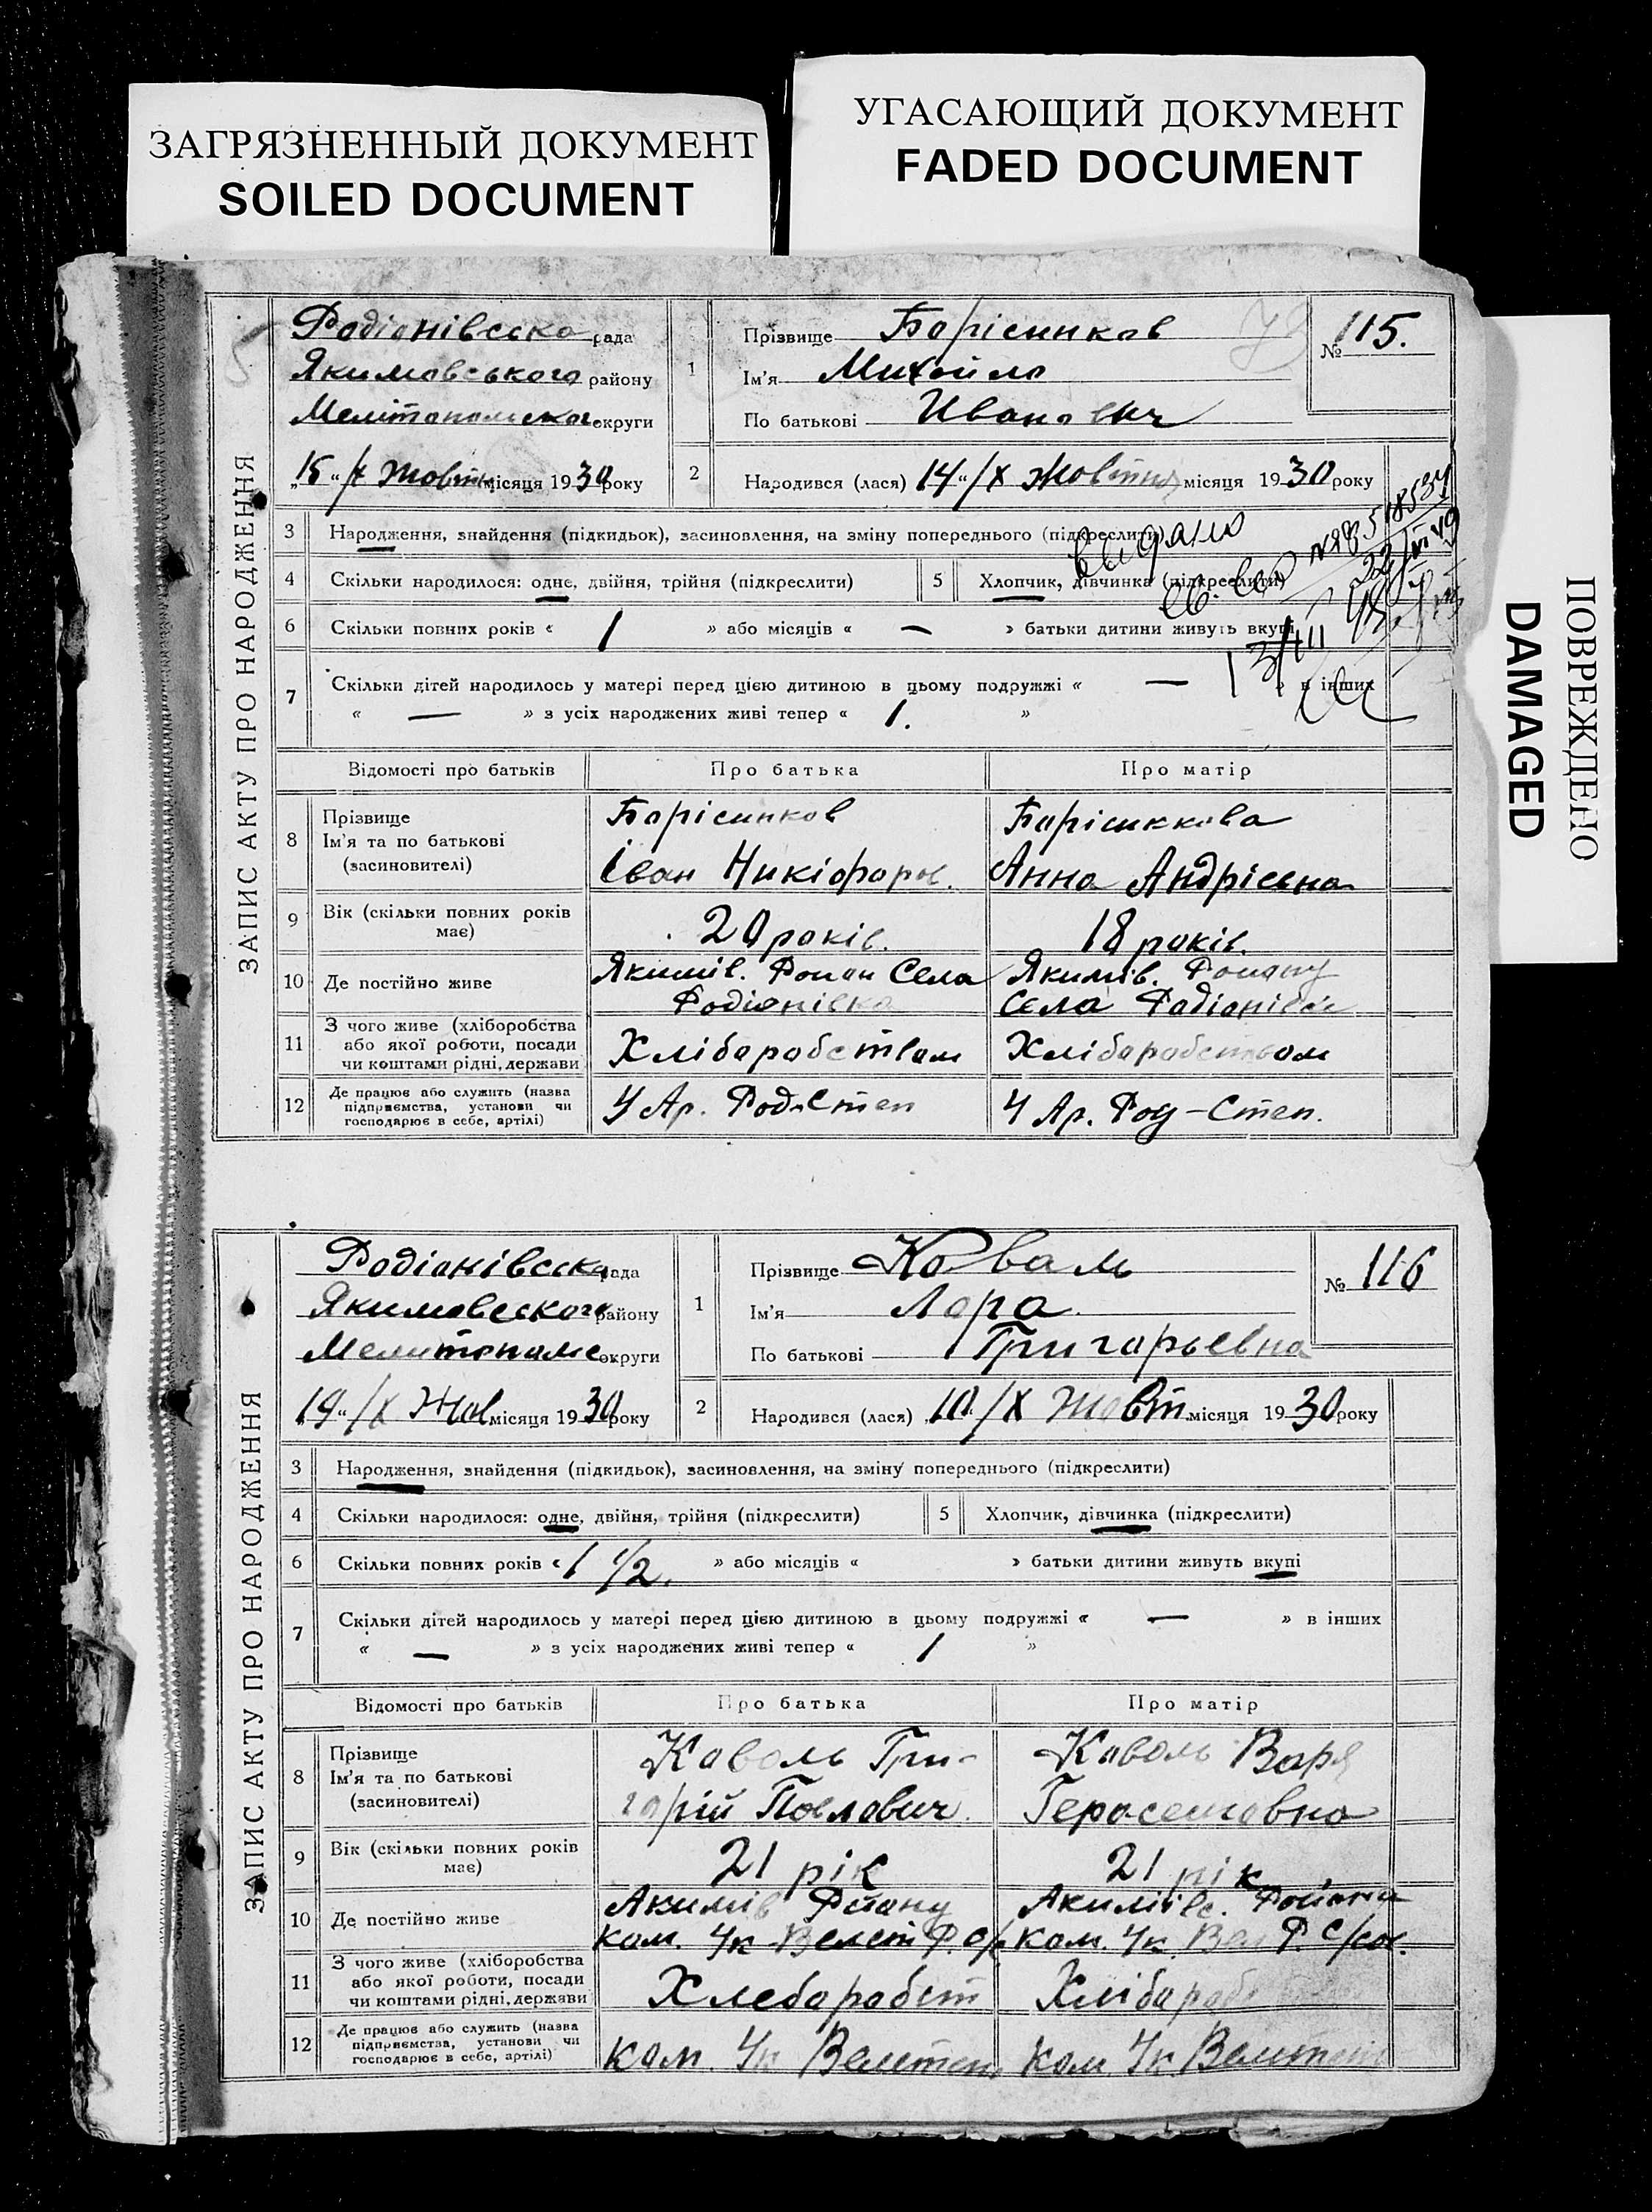 ЗАГРЯЗНЕННЫЙ ДОКУМЕНТ
SOILED DOCUMENT
УГАСАЮЩИЙ ДОКУМЕНТ
FADED DOCUMENT
ПОВРЕЖДЕНО
DAMAGED
ЗАПИС АКТУ ПРО НАРОДЖЕННЯ
Родіонівська рада
Якимовського району
округи
15 "/X Жовтня місяця 1930 року
1
Прізвище Борісинков
Ім'я Михайло
По батькові Иванович
№ 115.
2 Народився (лася) 14 "/X Жовтня місяця 1930 року
3 Народження, знайдення (підкидьок), засиновлення, на зміну попереднього (підкреслити)
4 Скільки народилося: одне, двійня, трійня (підкреслити) 5 Хлопчик, дівчинка (підкреслити)
выдано
6 Скільки повних років « 1 » або місяців « — » батьки дитини живуть вкупі
7 Скільки дітей народилось у матері перед цією дитиною в цьому подружжі « — » в інших
« — » з усіх народжених живі тепер « 1. »
Відомості про батьків Про батька Про матір
8 Прізвище Ім'я та по батькові (засиновителі)
Борісинков Борісинкова
Іван Никіфоров. Анна Андрієвна
9 Вік (скільки повних років має) 20 років. 18 років.
10 Де постійно живе
Якимів. Району Села Родіонівка
Якимів. Району Села Родіонівка
11 З чого живе (хліборобства або якої роботи, посади чи коштами рідні, держави
Хліборобством Хліборобством
12 Де працює або служить (назва підприємства, установи чи господарює в себе, артілі)
У Ар. Род-Степ У Ар. Род-Степ.
ЗАПИС АКТУ ПРО НАРОДЖЕННЯ
Родіонівська рада
Якимовського району
округи
19 "/X Жов місяця 1930 року
1
Прізвище Коваль
Ім'я Лора
По батькові Григорьевна
№ 116
2 Народився (лася) 10 /X Жовт місяця 1930 року
3 Народження, знайдення (підкидьок), засиновлення, на зміну попереднього (підкреслити)
4 Скільки народилося: одне, двійня, трійня (підкреслити) 5 Хлопчик, дівчинка (підкреслити)
6 Скільки повних років « 1 1/2. » або місяців « » батьки дитини живуть вкупі
7 Скільки дітей народилось у матері перед цією дитиною в цьому подружжі « — » в інших
« — » з усіх народжених живі тепер « 1 »
Відомості про батьків Про батька Про матір
8 Прізвище Ім'я та по батькові (засиновителі)
Коваль Гри- Коваль Варя
горій Павлович. Герасемовна
9 Вік (скільки повних років має) 21 рік 21 рік
10 Де постійно живе
Акимів Району
ком. Ук
Акимівс. Району
ком. Ук.
11 З чого живе (хліборобства або якої роботи, посади чи коштами рідні, держави
Хлеборобст Хлібороб
12 Де працює або служить (назва підприємства, установи чи господарює в себе, артілі)
ком. Ук ком. Ук.